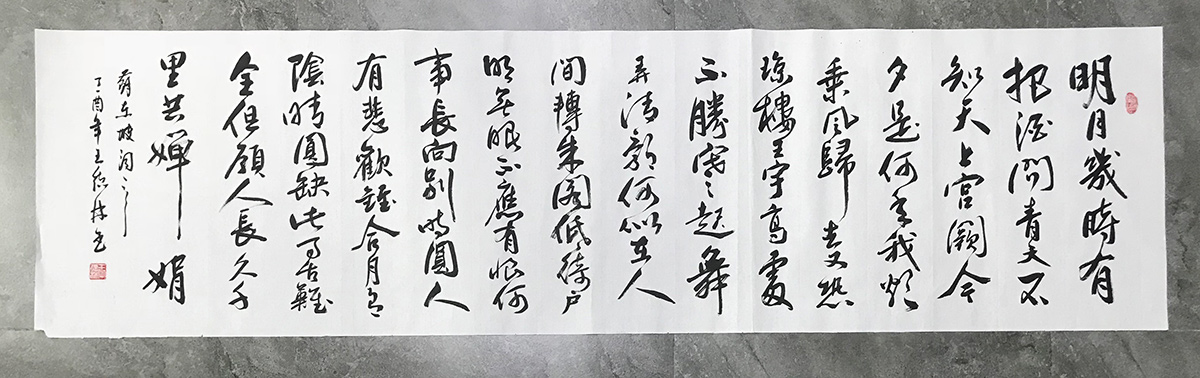 明月幾時有
把酒問青天不
知天上宮闕今
夕是何年我欲
乘風歸去又恐
瓊樓玉宇高處
不勝寒〻起舞
弄清影何似在人
間轉朱閣低綺户
照無眠不應有恨何
事長向別時圓人
有悲歡離合月有
陰晴圓缺此事古難
全但願人長久千
里共嬋娟
蘇東坡詞
丁酉年王林書